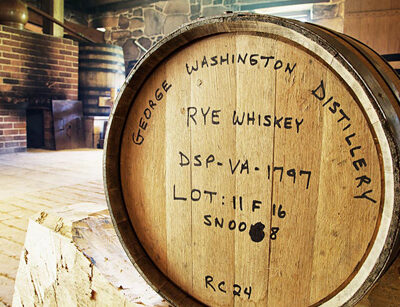 GEORGE WASHINGTON DISTILLERY
RYE WHISKEY
DSP-VA-1797
LOT: 11 F 16
RC24